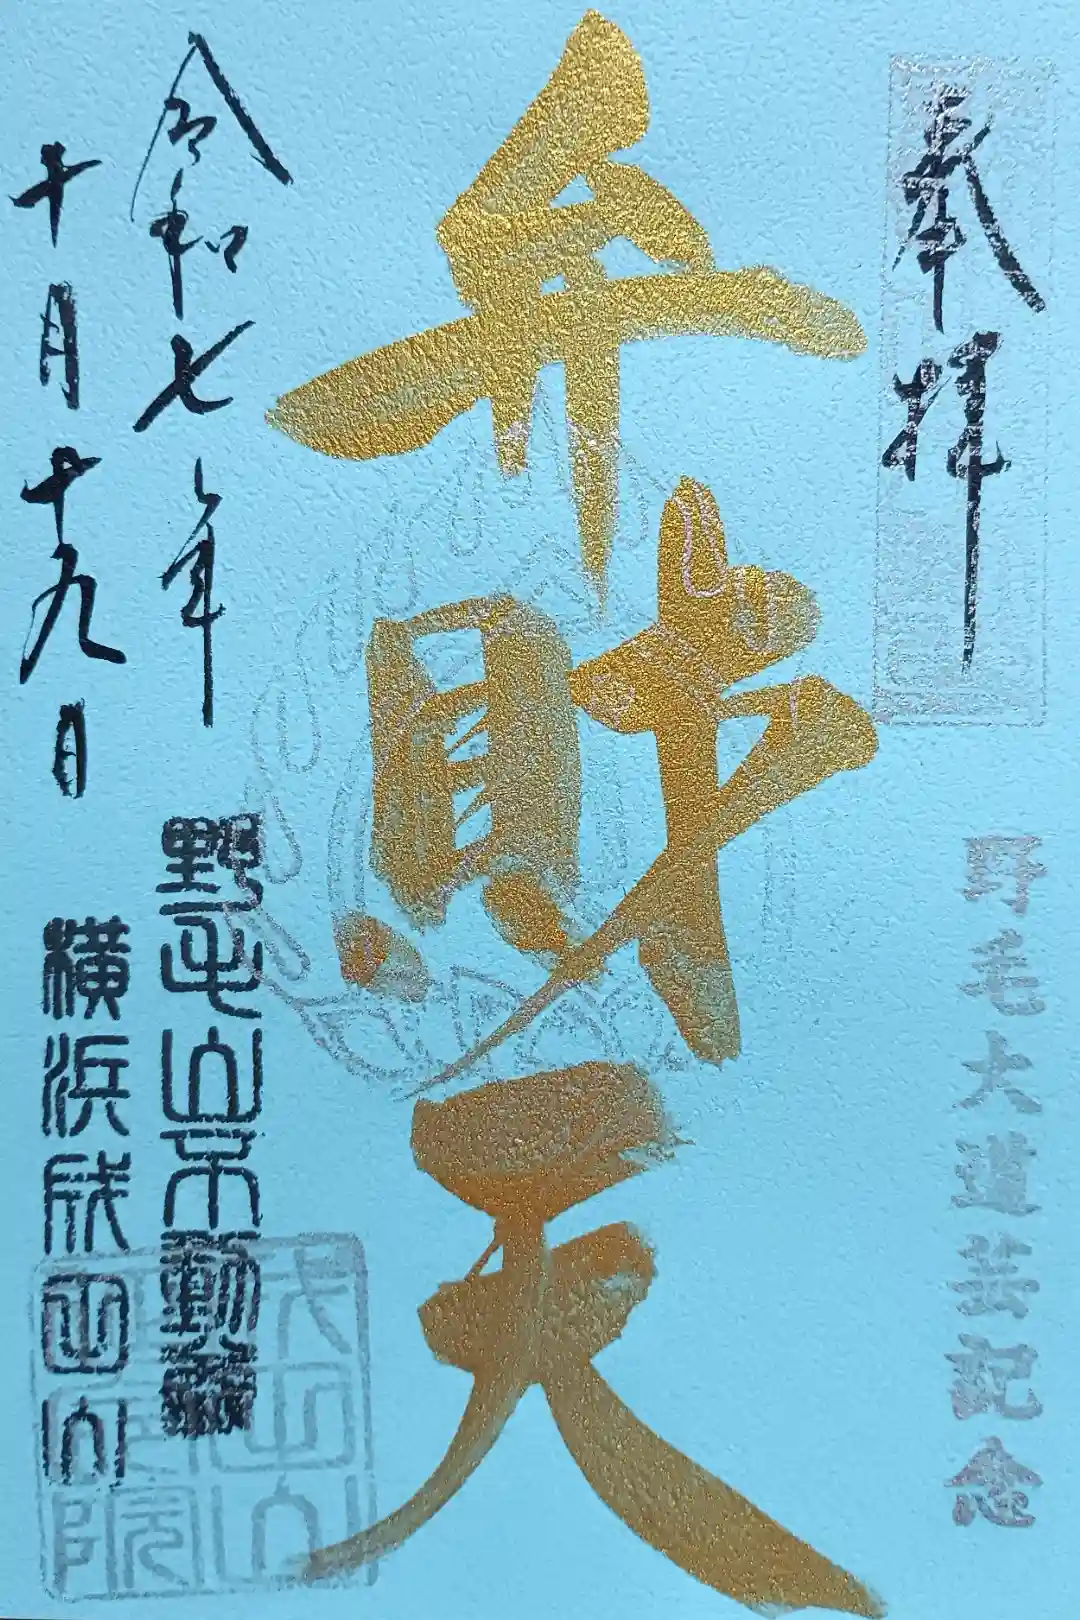 奉拝
野毛大道芸記念
弁財天
令和七年
十月十九日
野毛山不動尊
横浜成田山
成田山
院